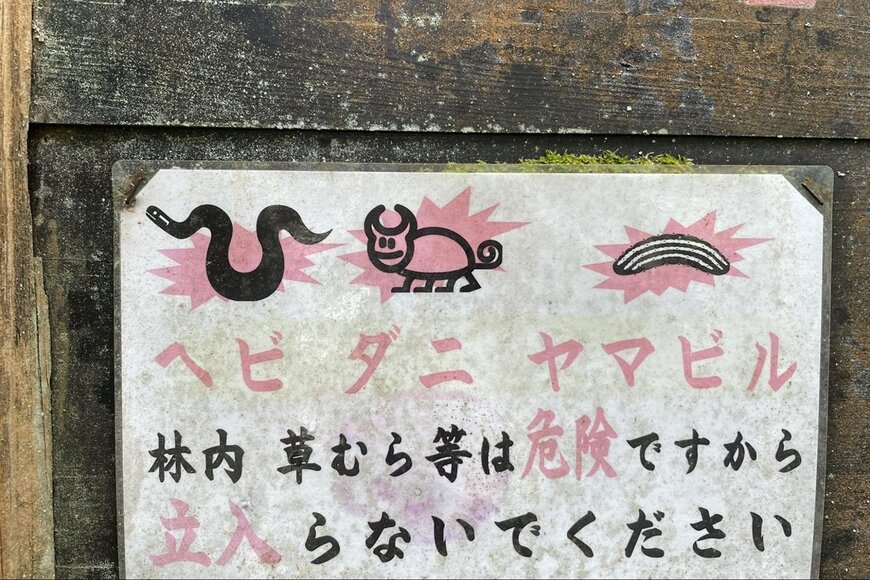 ヘビ ダニ ヤマビル
林内 草むら等は危険ですから
立入らないでください